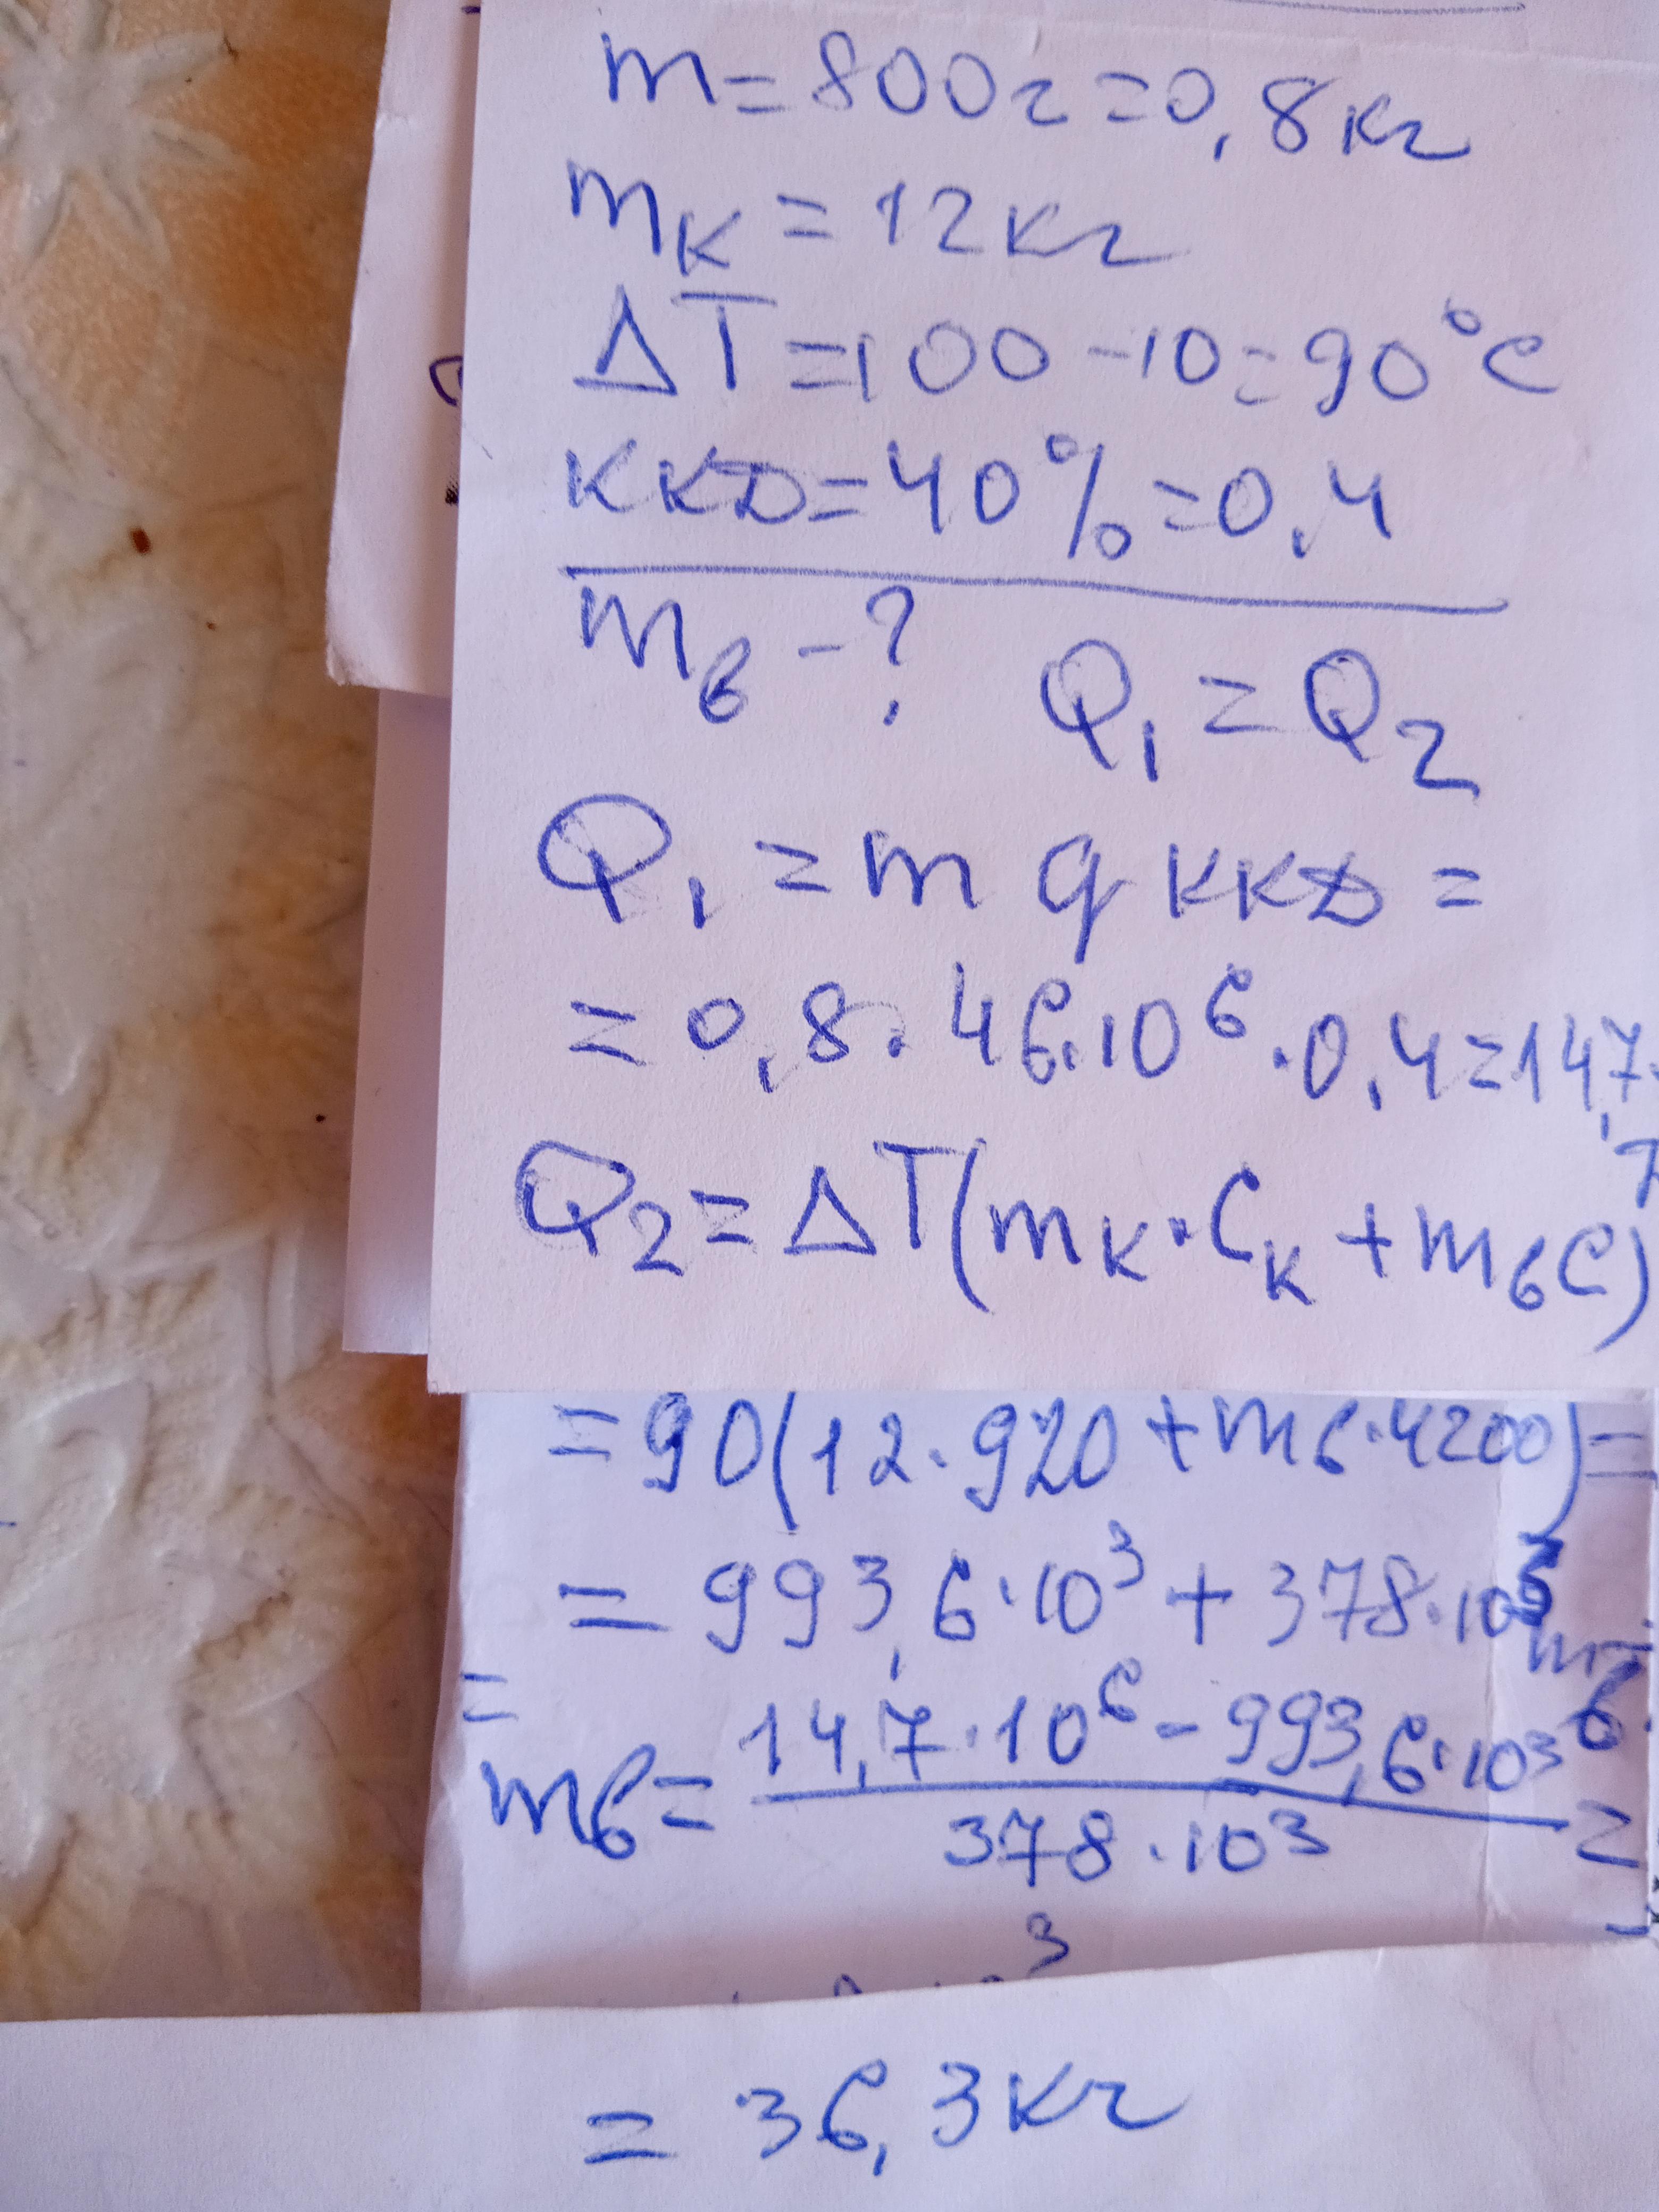 m=800г=0,8кг
mк=12кг
ΔT=100-10=90°C
ККД=40%=0,4
mв-? Q₁=Q₂
Q₁=m q ККД=
=0,8·46·10⁶·0,4=14,7·
Q₂=ΔT(mк·Cк+mвC)
=90(12·920+mв·4200)=
=993,6·10³+378·10³mв
=
mв= 14,7·10⁶-993,6·10³ / 378·10³ =
=36,3кг